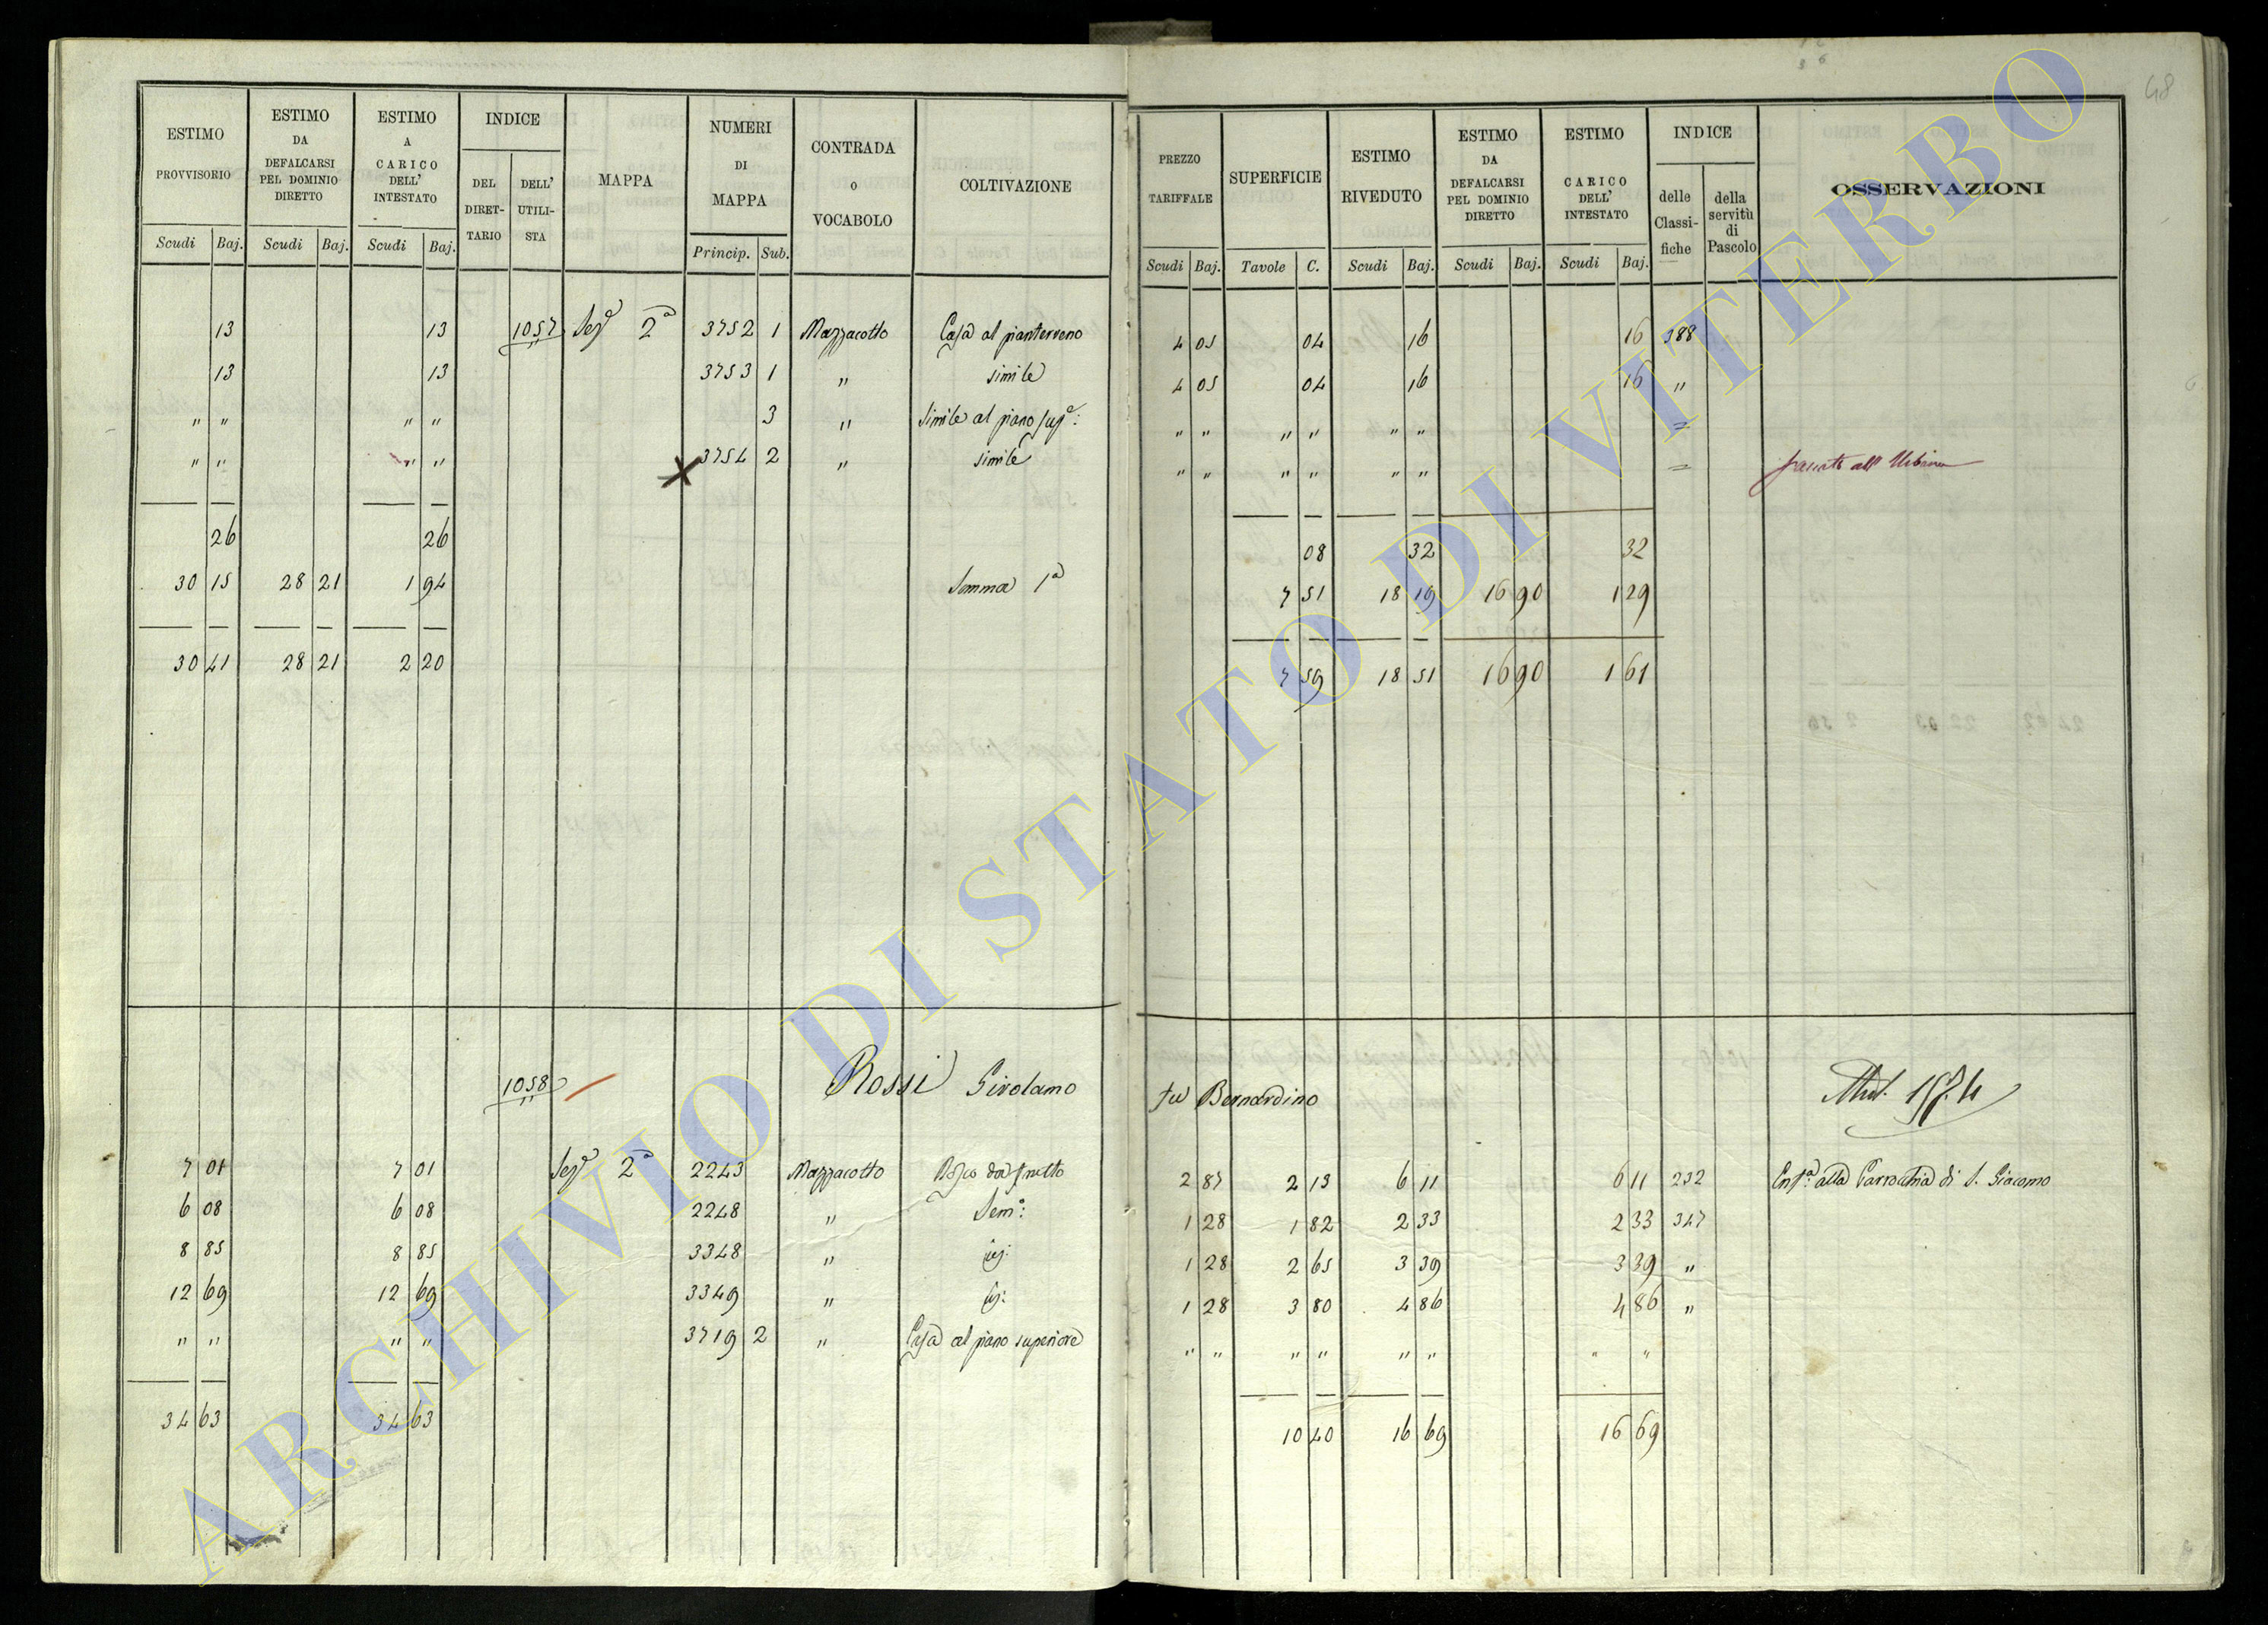 48
ESTIMO PROVVISORIO | ESTIMO DA DEFALCARSI PEL DOMINIO DIRETTO | ESTIMO A CARICO DELL' INTESTATO | INDICE | MAPPA | NUMERI DI MAPPA | CONTRADA O VOCABOLO | COLTIVAZIONE | PREZZO TARIFFALE | SUPERFICIE | ESTIMO RIVEDUTO | ESTIMO DA DEFALCARSI PEL DOMINIO DIRETTO | ESTIMO CARICO DELL' INTESTATO | INDICE | OSSERVAZIONI
DEL DIRETTARIO | DELL' UTILISTA | delle Classifiche | della servitù di Pascolo
Scudi | Baj. | Scudi | Baj. | Scudi | Baj. | Princip. | Sub. | Scudi | Baj. | Tavole | C. | Scudi | Baj. | Scudi | Baj. | Scudi | Baj.
13 | 13 | 1057 | Sez.e 2a | 3752 | 1 | Mazzacotto | Casa al pianterreno | 4 05 | 04 | 16 | 16 | 388
13 | 13 | 3753 | 1 | " | simile | 4 05 | 04 | 16 | 16 | "
" " | " " | 3 | " | Simile al piano sup.e: | " " | " " | " " | =
" " | " " | X 3754 | 2 | " | simile | " " | " " | " " | = | passato all' Urbano
26 | 26 | 08 | 32 | 32
30 15 | 28 21 | 1 94 | Somma 1a | 7 51 | 18 19 | 16 90 | 1 29
30 41 | 28 21 | 2 20 | 7 59 | 18 51 | 16 90 | 1 61
1058 | Rossi Girolamo fu Bernardino
7 01 | 7 01 | Sez.e 2a | 2243 | Mazzacotto | Bosco da frutto | 2 87 | 2 13 | 6 11 | 6 11 | 232 | Enf.a alla Parrochia di S. Giacomo
6 08 | 6 08 | 2248 | " | Sem.o: | 1 28 | 1 82 | 2 33 | 2 33 | 347
8 85 | 8 85 | 3348 | " | 1 28 | 2 65 | 3 39 | 3 39 | "
12 69 | 12 69 | 3349 | " | 1 28 | 3 80 | 4 86 | 4 86 | "
" " | " " | 3719 | 2 | " | Casa al piano superiore | " " | " " | " " | " "
34 63 | 34 63 | 10 40 | 16 69 | 16 69
ARCHIVIO DI STATO DI VITERBO